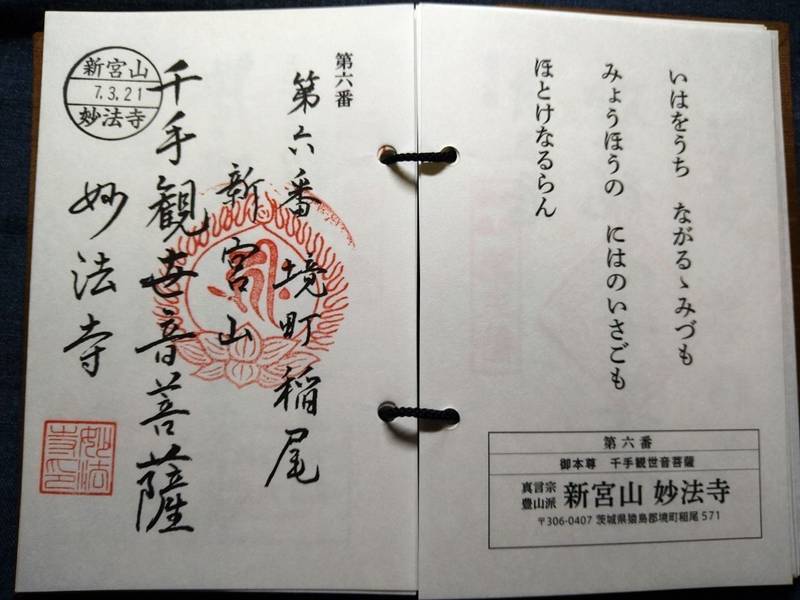 いはをうち　ながるゝみづも
みょうほうの　にはのいさごも
ほとけなるらん
第六番
御本尊　千手観世音菩薩
真言宗
豊山派
新宮山 妙法寺
〒306-0407 茨城県猿島郡境町稲尾 571
第六番
第六番 境町 稲尾
新宮山
千手観世音菩薩
妙法寺
新宮山
7.3.21
妙法寺
妙法
寺印